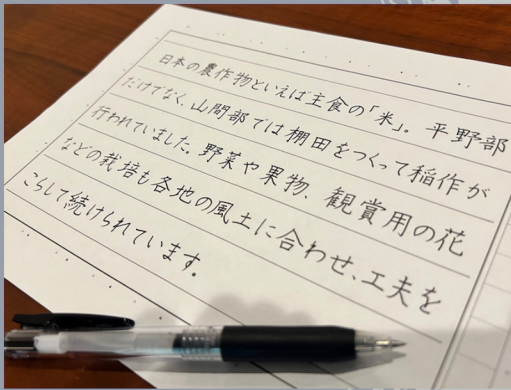 日本の農作物といえば主食の「米」。平野部
だけでなく、山間部では棚田をつくって稲作が
行われていました。野菜や果物、観賞用の花
などの栽培も各地の風土に合わせ、工夫を
こらして続けられています。